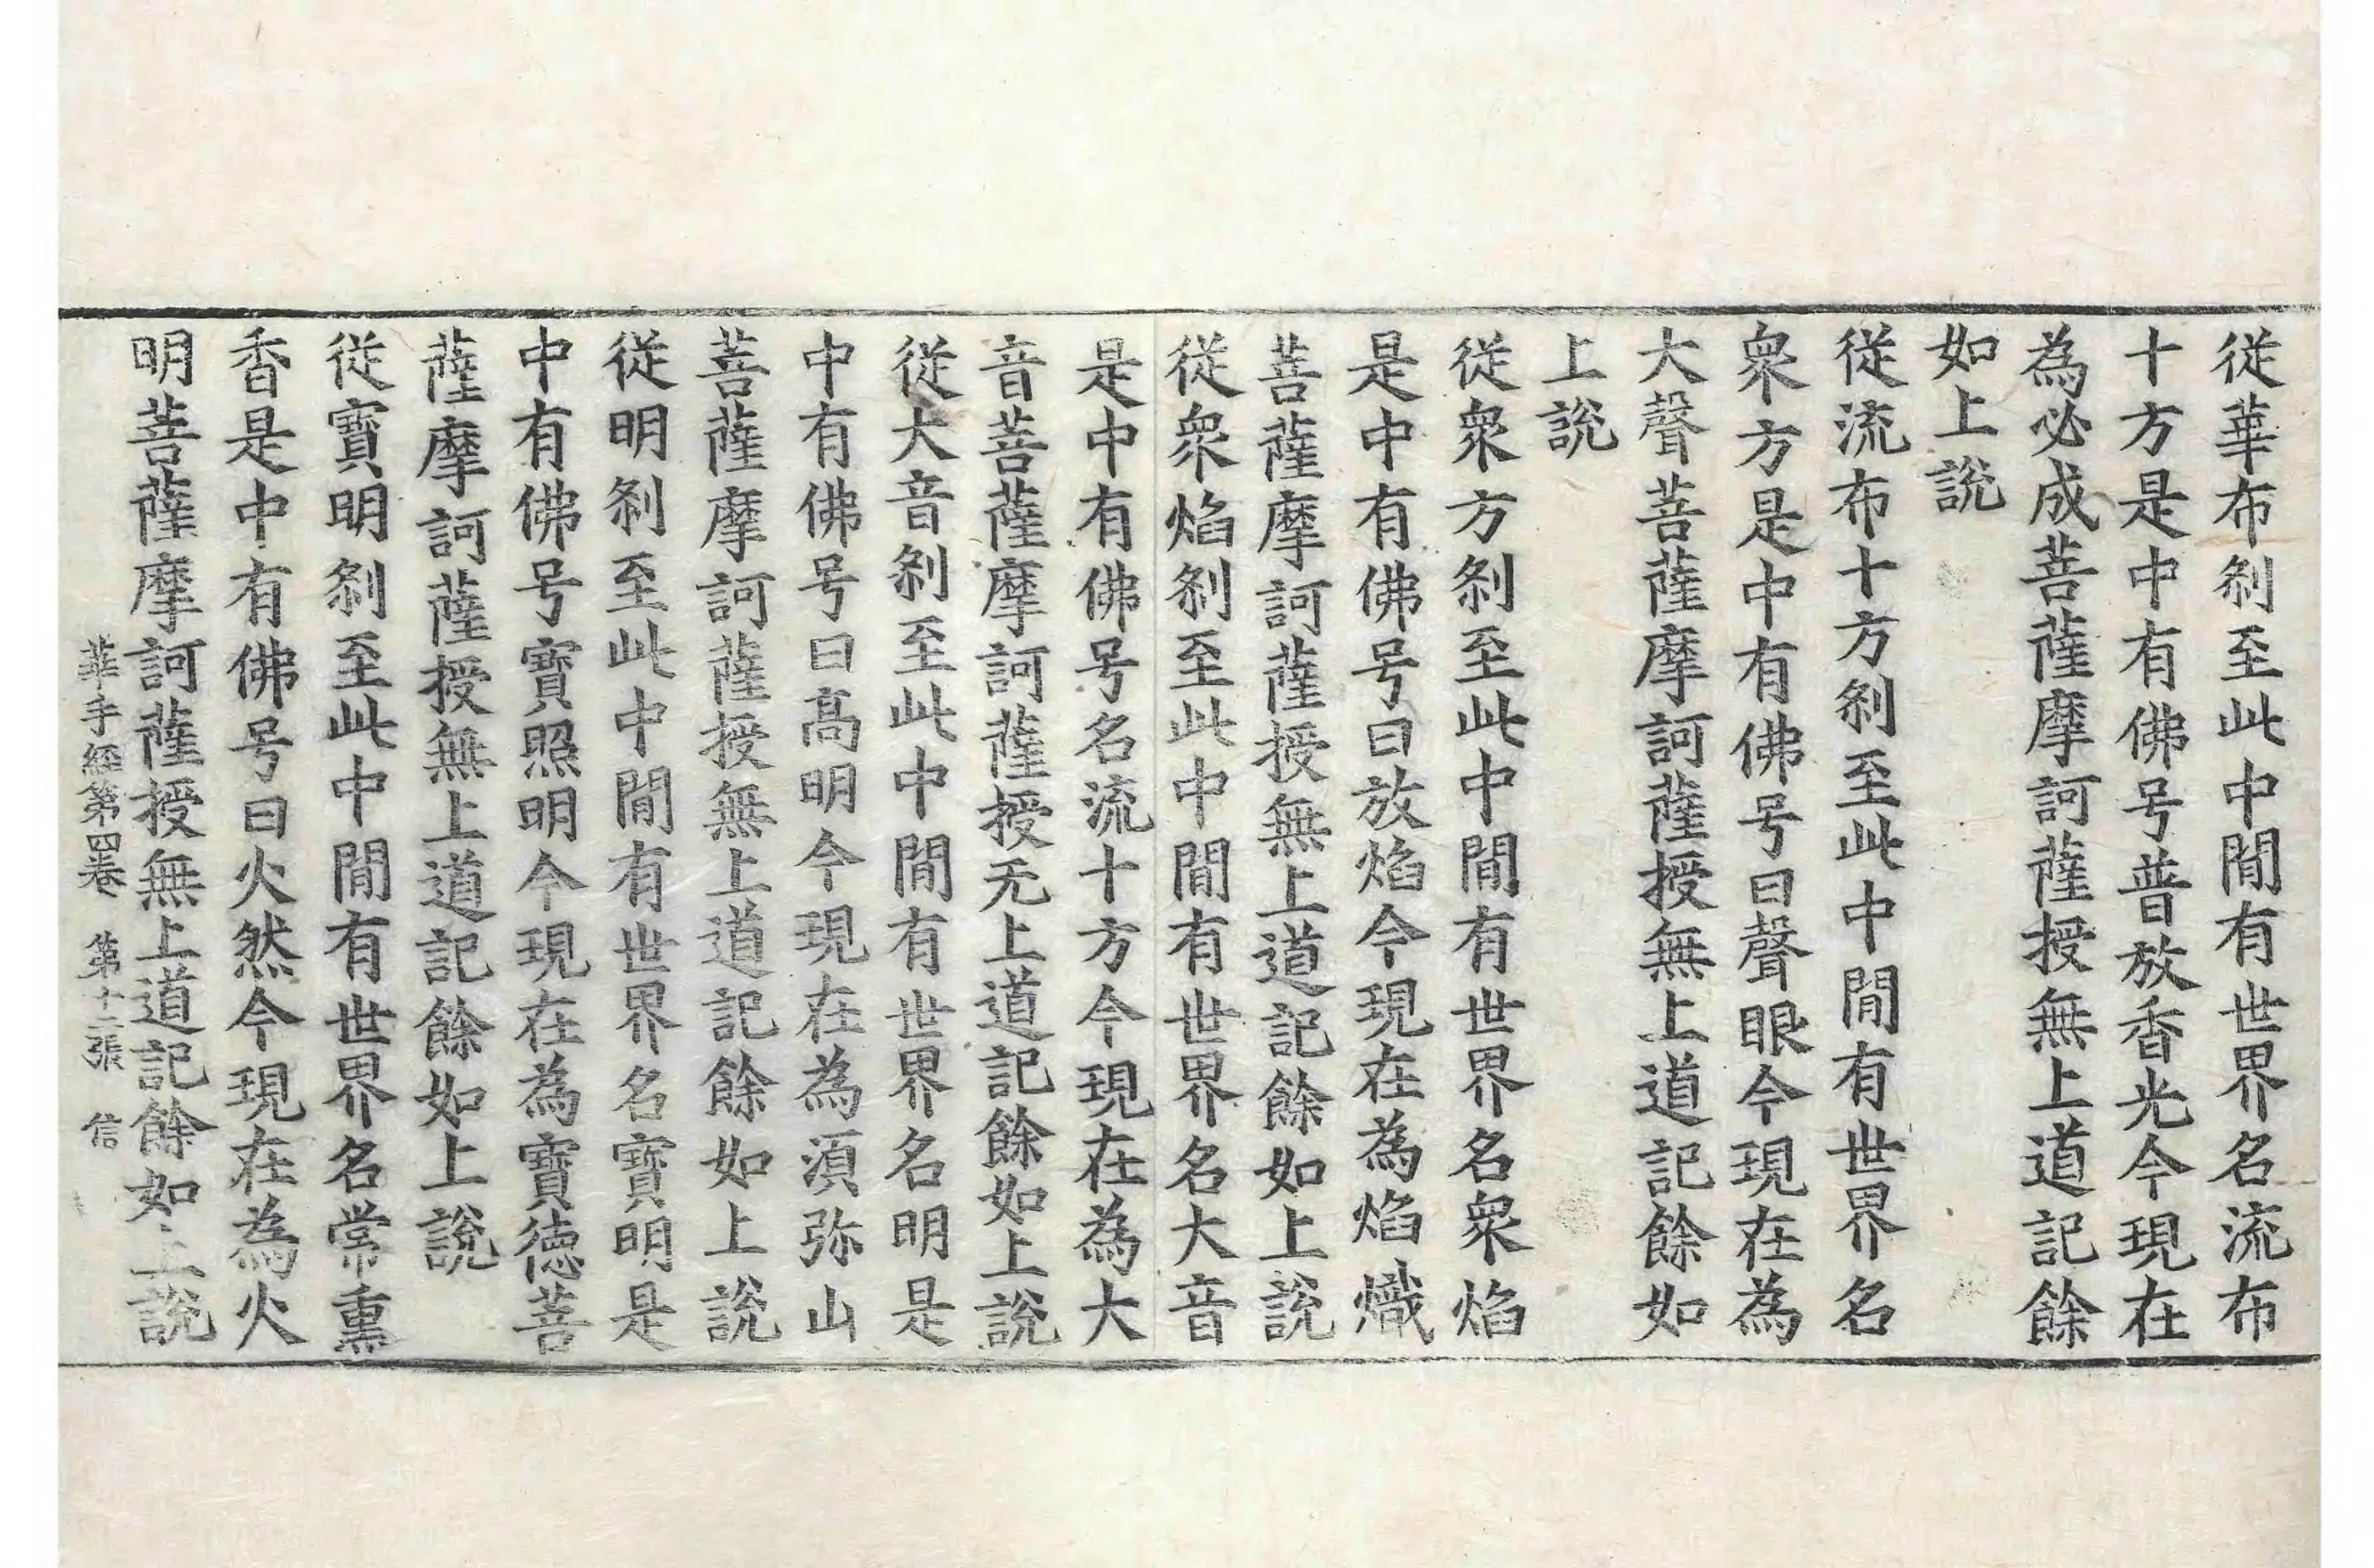 從華布刹至此中閒有世界名流布
十方是中有佛号普放香光今現在
為必成菩薩摩訶薩授無上道記餘
如上說
從流布十方刹至此中閒有世界名
衆方是中有佛号曰聲眼今現在為
大聲菩薩摩訶薩授無上道記餘如
上說
從衆方刹至此中閒有世界名衆焰
是中有佛号曰放焰今現在為焰熾
菩薩摩訶薩授無上道記餘如上說
從衆焰刹至此中閒有世界名大音
是中有佛号名流十方今現在為大
音菩薩摩訶薩授无上道記餘如上說
從大音刹至此中閒有世界名明是
中有佛号曰髙明今現在為湏弥山
菩薩摩訶薩授無上道記餘如上說
從明刹至此中閒有世界名寶明是
中有佛号寶照明今現在為寶德菩
薩摩訶薩授無上道記餘如上說
從寶明刹至此中閒有世界名常熏
香是中有佛号曰火然今現在為火
明菩薩摩訶薩授無上道記餘如上說
華手經第四卷 第十二張 信